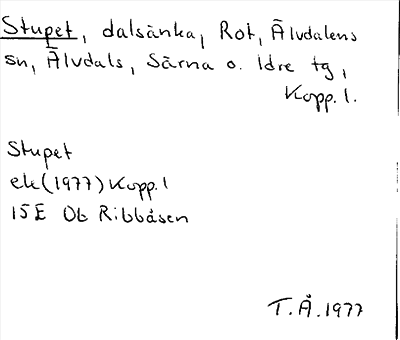 Stupet, dalsänka, Rot, Älvdalens
sn, Älvdals, Särna o. Idre tg,
Kopp. l.
Stupet
ek (1977) Kopp. l
15E 0b Ribbåsen
T.Å. 1977